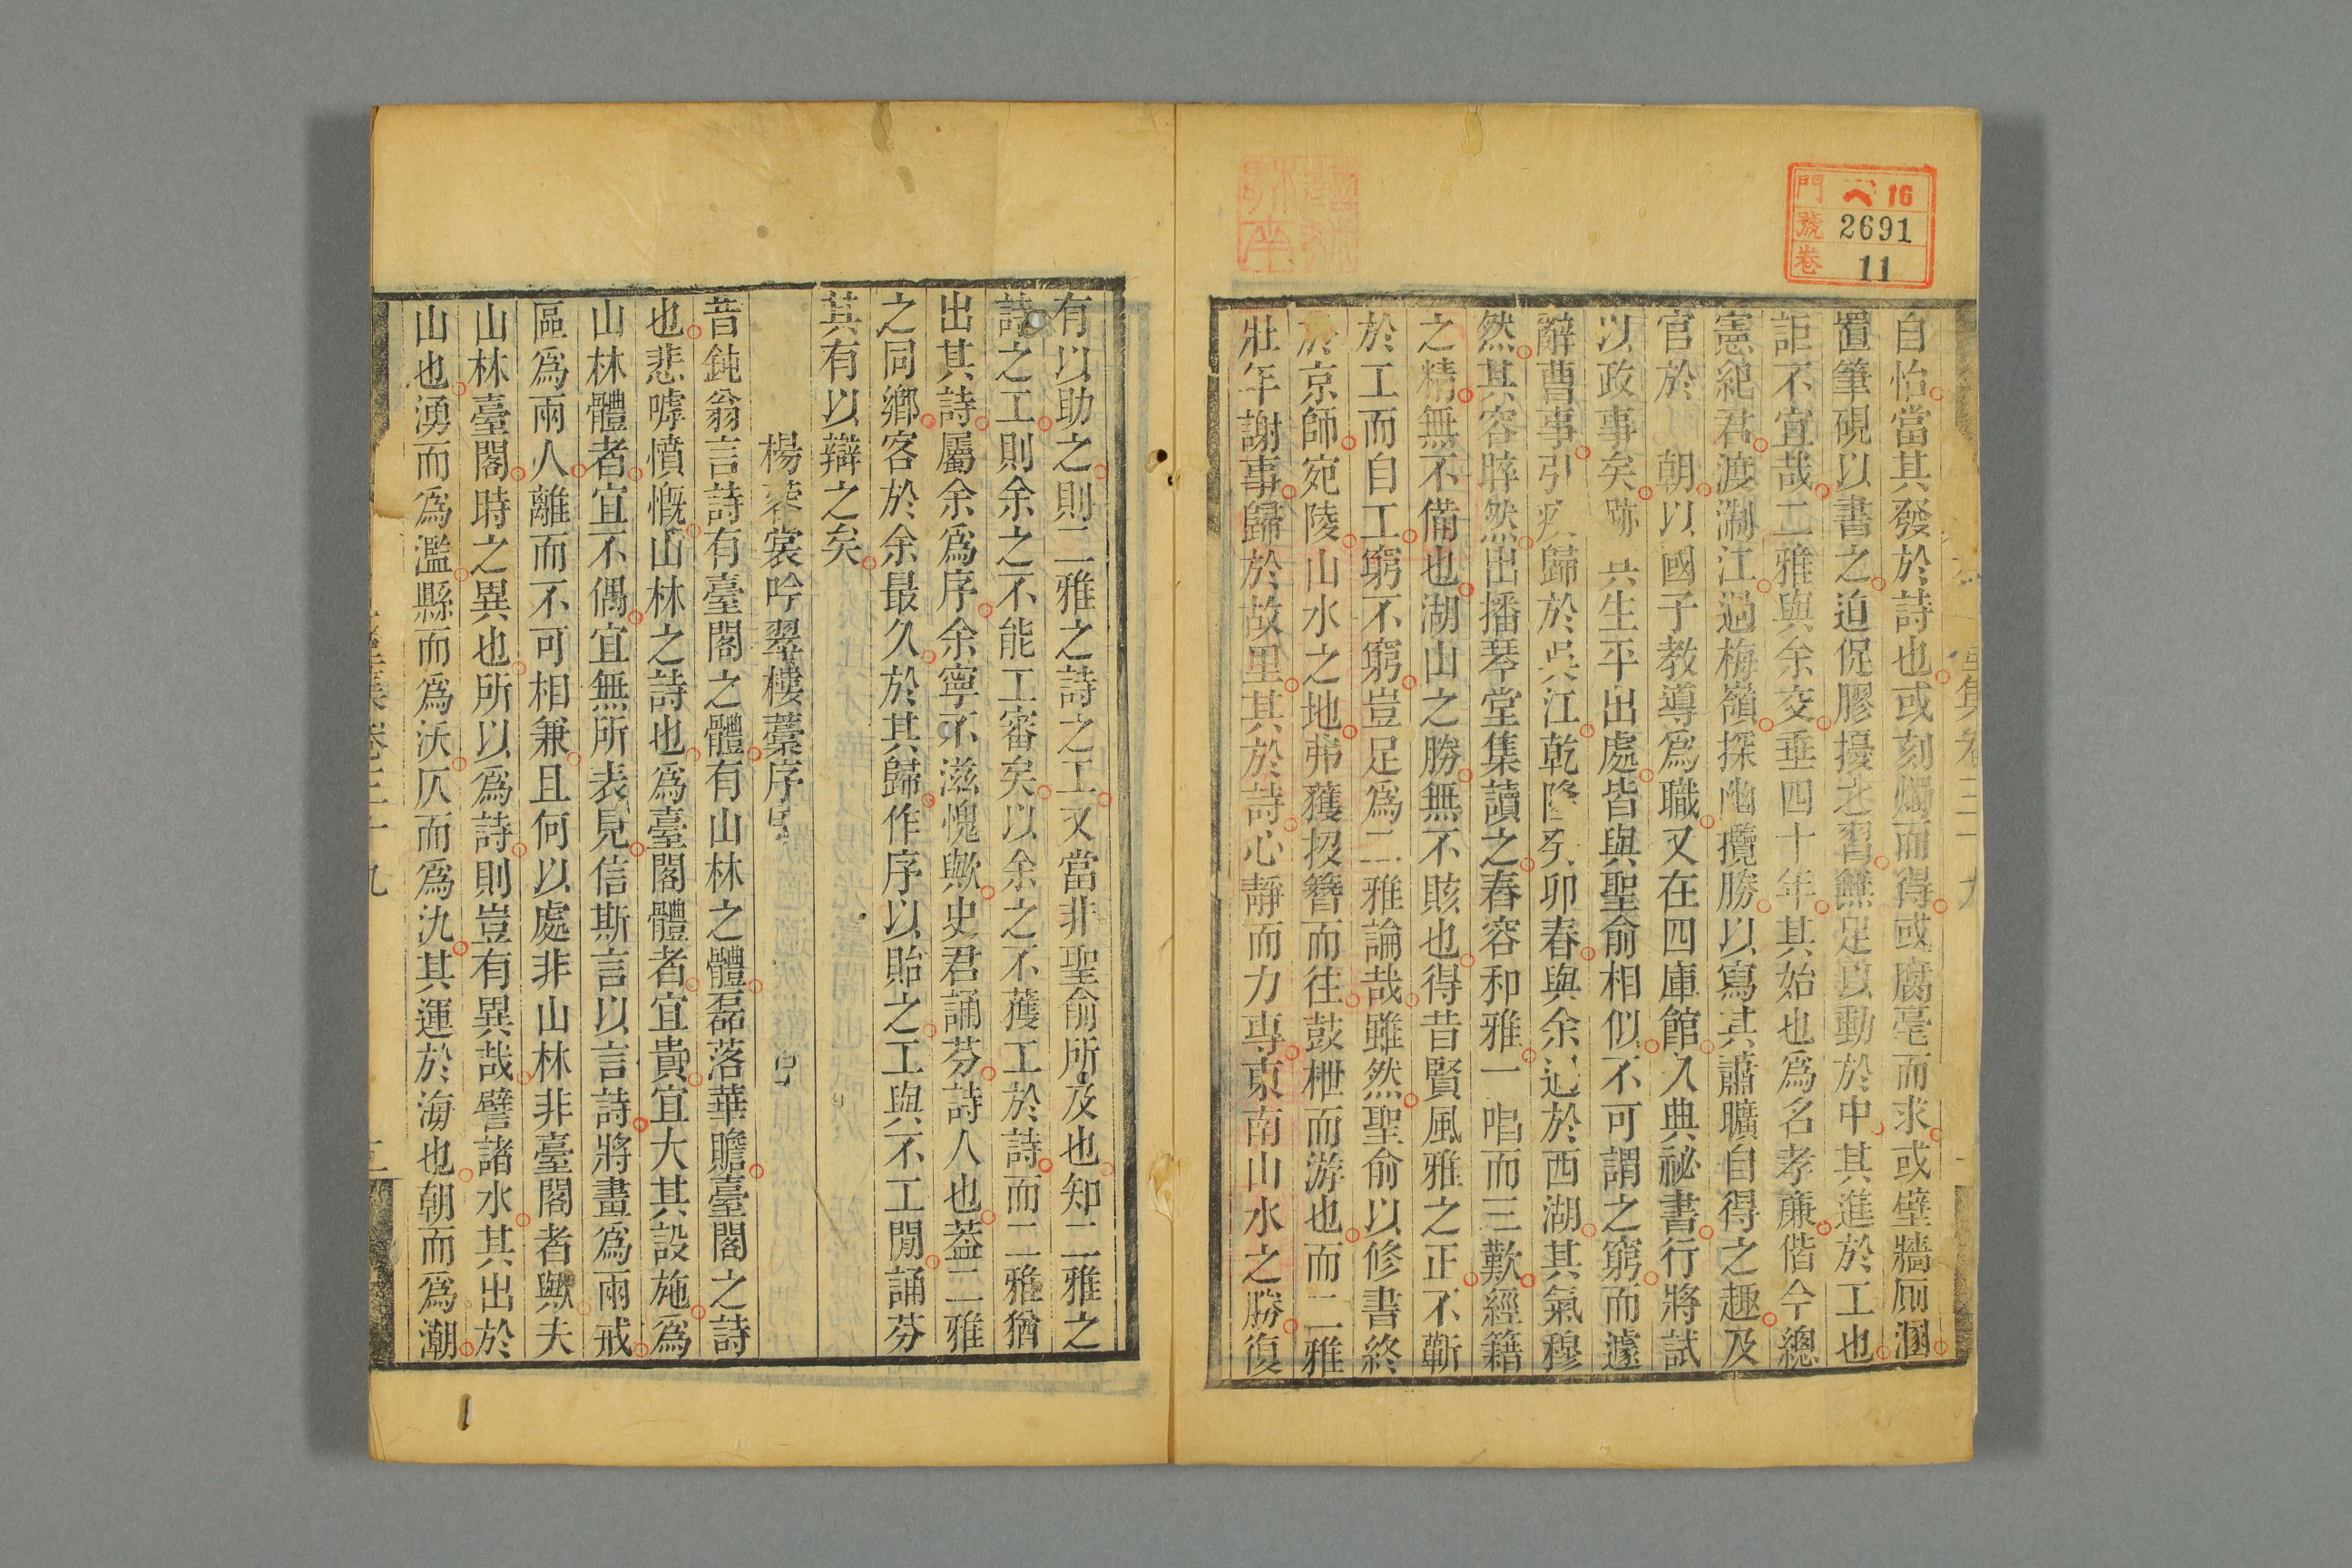 門 ヘ 16
號 2691
卷 11
集卷三十九
自怡當其發於詩也或刻燭而得或腐毫而求或壁牆厠溷
置筆硯以書之迫促膠擾老習無足以動於中其進於工也
詎不宜哉二雅與余交垂四十年其始也爲名孝廉偕今總
憲紀君渡浙江過梅嶺探幽攬勝以寫其蕭曠自得之趣及
官於 朝以國子教導爲職又在四庫館入典祕書行將試
以政事矣跡其生平出處皆與聖俞相似不可謂之窮而遽
辭曹事引疾歸於吳江乾隆癸卯春與余遇於西湖其氣穆
然其容晬然出播琴堂集讀之舂容和雅一唱而三歎經籍
之精無不備也湖山之勝無不賅也得昔賢風雅之正不蘄
於工而自工窮不窮豈足爲二雅論哉雖然聖俞以修書終
於京師宛陵山水之地弗獲投簪而往鼓枻而游也而二雅
壯年謝事歸於故里其於詩心靜而力專東南山水之勝復
有以助之則二雅之詩之工又當非聖俞所及也知二雅之
詩之工則余之不能工審矣以余之不獲工於詩而二雅猶
出其詩屬余爲序余寧不滋愧歟史君誦芬詩人也葢二雅
之同鄉客於余最久於其歸作序以貽之工與不工閒誦芬
其有以辯之矣
楊蓉裳吟翠樓藁序
昔鈍翁言詩有臺閣之體有山林之體磊落華贍臺閣之詩
也悲嘑憤慨山林之詩也爲臺閣體者宜貴宜大其設施爲
山林體者宜不偶宜無所表見信斯言以言詩將畫爲兩戒
區爲兩人離而不可相兼且何以處非山林非臺閣者歟夫
山林臺閣時之異也所以爲詩則豈有異哉譬諸水其出於
山也湧而爲濫縣而爲沃仄而爲氿其運於海也朝而爲潮
集卷三十九